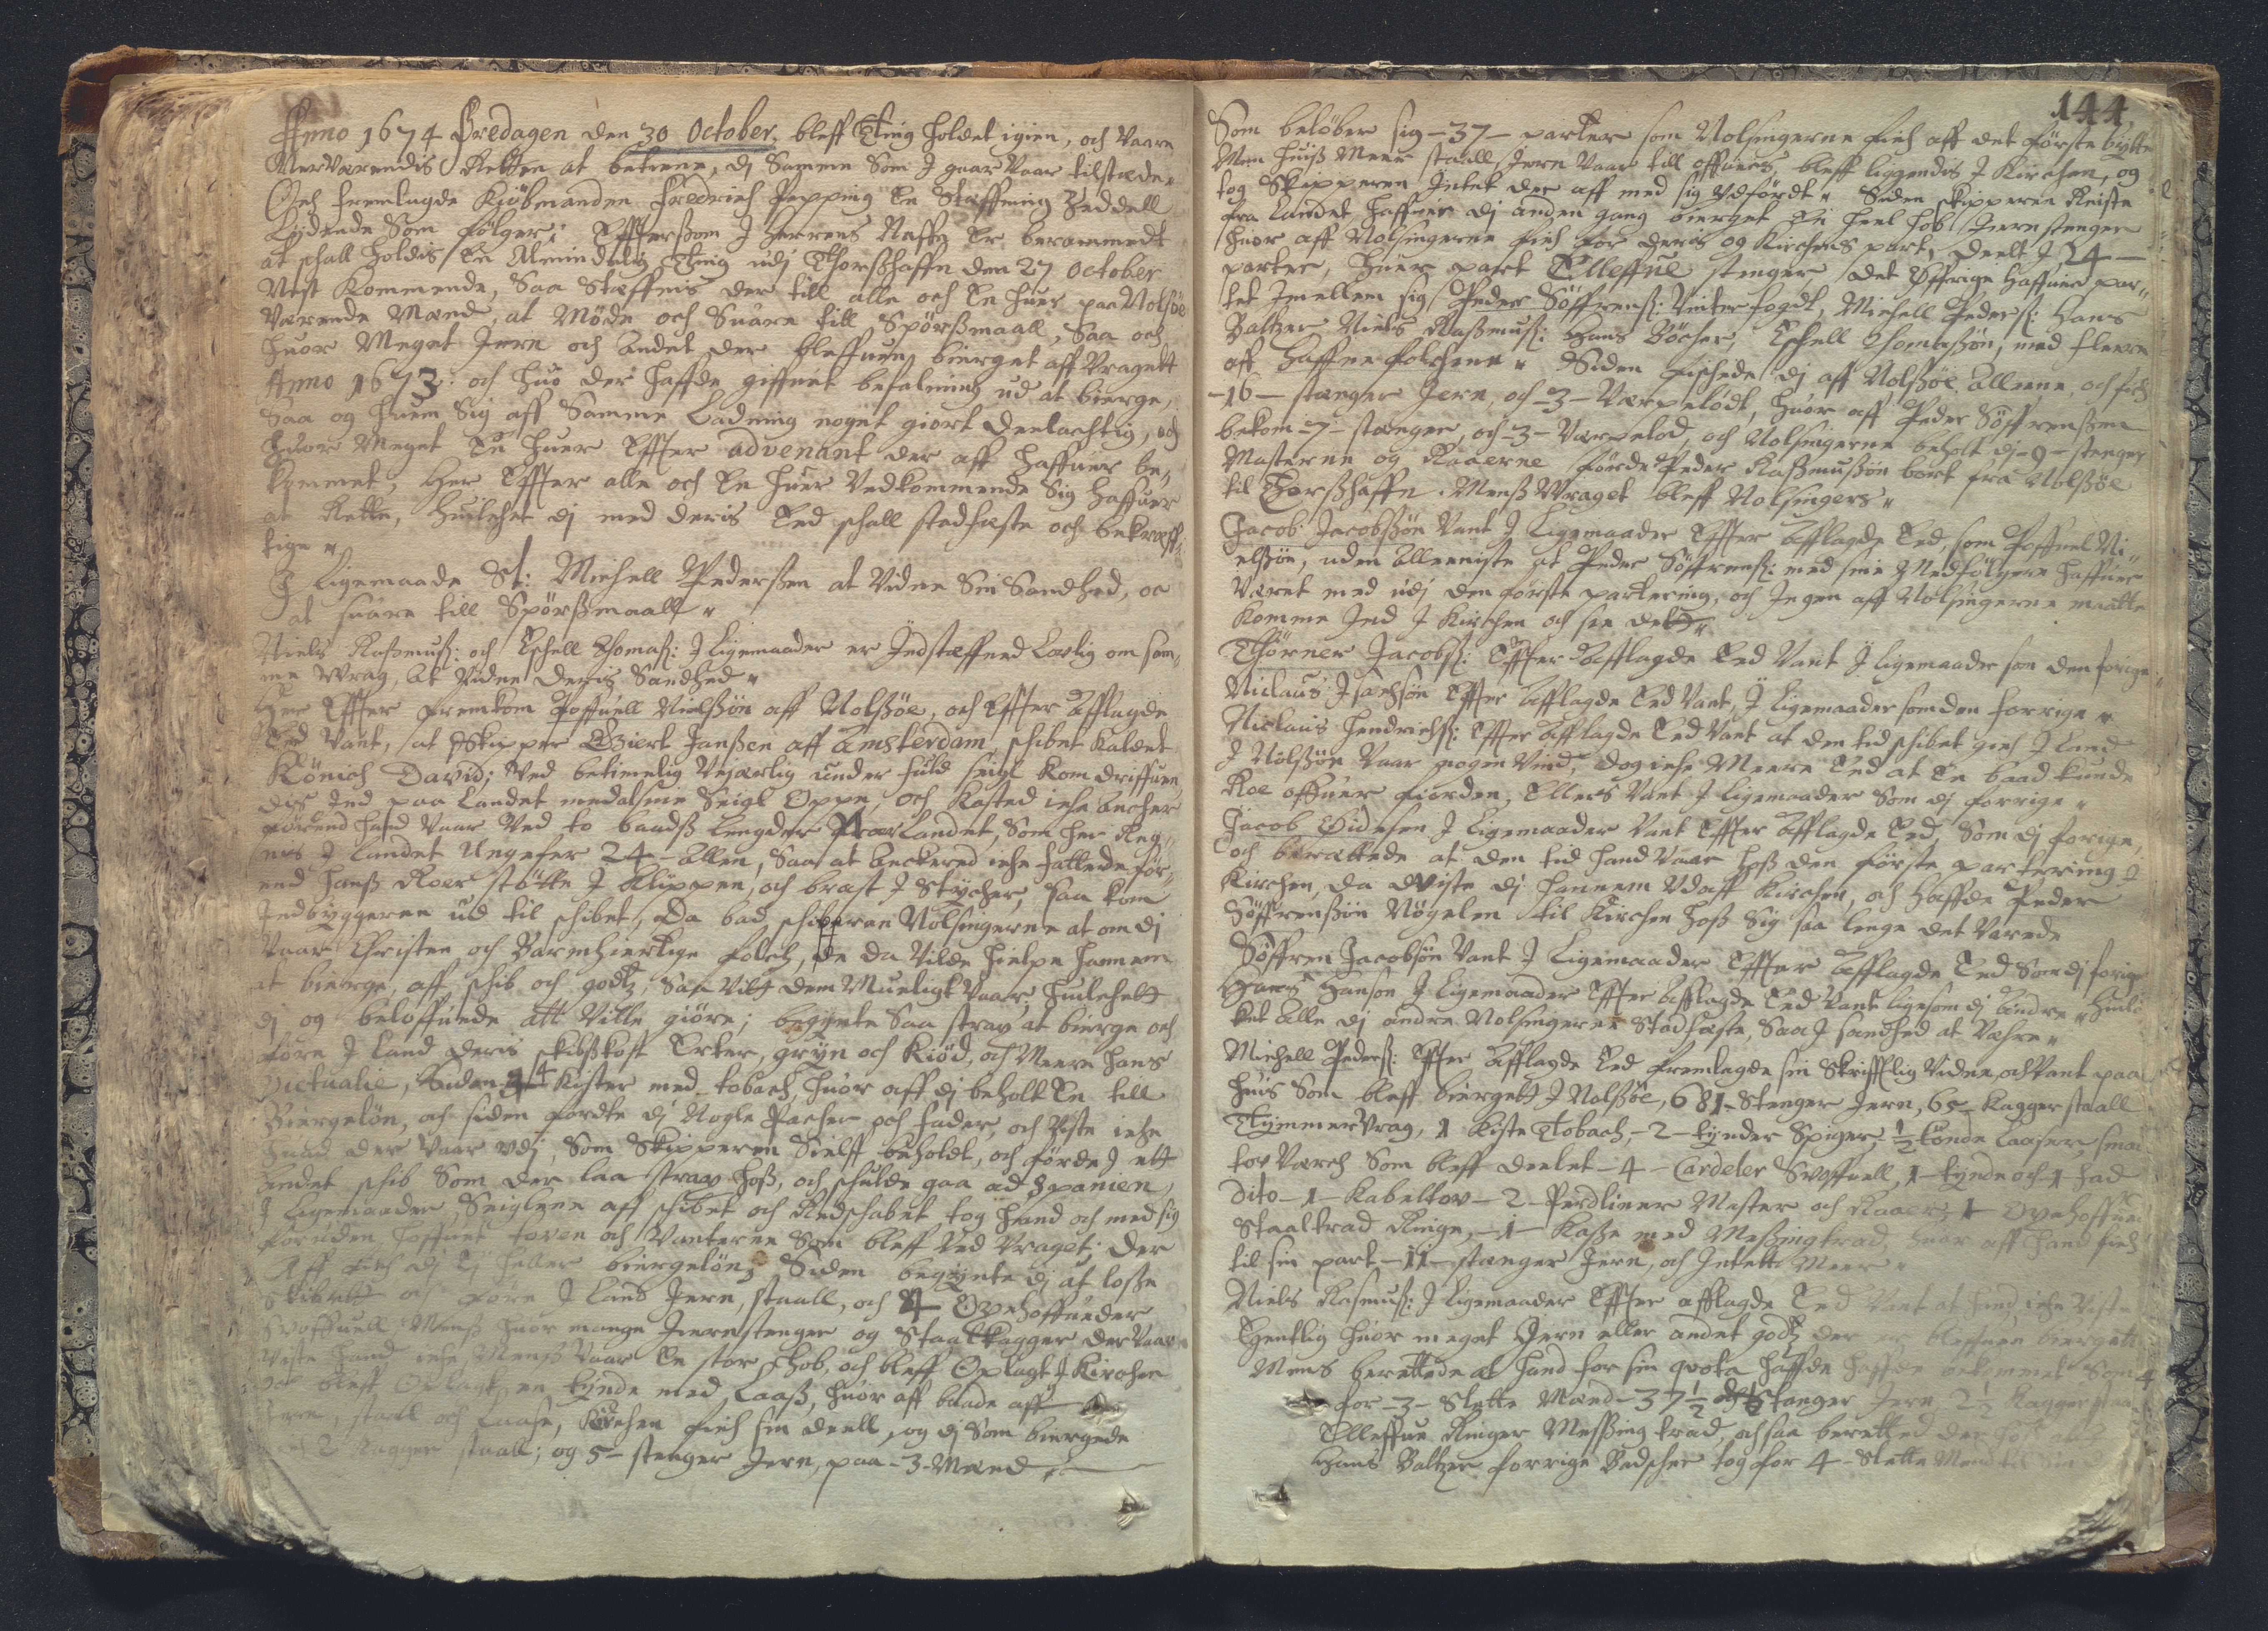 Anno 1674 Fredagen den 30 October, bleff Ting holdet igien, och Vaare
Nerværendis Retten at betiene, dj Samme Som J gaar Vaar tilstæde,
Och fremlagde Kiöbmanden Fredrich Pepping En Stæffning Zeddell
Lydende Som følger; Effterssom J Herrens Naffn Er berammedt
at schall holdis En Almindelig Ting udj Thorsshaffn den 27 October
Nest Kommende, Saa Stæffnis der till alle och En huer paa Nolsöe
Værende Mænd, at Møde och Suare till Spörssmaall, Saa och
huor Meget Jern och Andet der bleffuen bierget aff Vragett
Anno 1673: och huo der haffde giffuet befalning ud at bierge,
Saa og huem Sig aff Samme Ladning noget giort deelachtig, och
huor Meget En huer Effter advenant der aff haffuer be„
kommet, Her Effter alle och En huer Vedkommende Sig haffuer
at Rette, huilchet dj med deris Eed schall stadfæste och bekreff„
tige „
J Ligemaade St: Michell Pederssen at Vidne Sin Sandhed, oc
at suare till Spörssmaall „
Niels Rassmuss: och Eschell Thomass: J Ligemaader er Jndstæffned Lovlig om sam„
me Vrag, At Vidne Deris Sandhed „
Her Effter fremkom Poffuell Nielssön aff Nolssöe, och Effter Afflagde
Eed Vant, at Skipper Sciert Janssen aff Amsterdam, schibet Kaldet
Könich David; Ved betimelig Vejerlig under fuld seigl kom driffuen„
des Jnd paa Landet med alsine Seigl Oppe, och Kasted iche Ancher
förend hand Vaar Ved to baadss Lengder Nær Landet, Som her Reg„
nis J Landet Ungefer 24 - Allen, Saa at Anckered iche fattede för„
end hanss Roer stötte J Klippen, och brast J Stycher, saa kom
Jndbyggerne ud til schibet, Da bad schipperen Nolsingerne at om dj
Vaar Christen och Barmhiertige folch, de da Vilde hielpe hannem
at bierge, aff schib och godtz, Saa Vitt dem Mueligt Vaar, huilchett
dj og beloffuede att Ville giöre; begynte Saa strax at bierge och
före J Land deris skibsskost Erter, gryn och Kiöd, och Meere hans
Victualie, Siden 4 Kister med tobach, huor aff dj beholt En till
Biergelön, och siden fördte dj Nogle Pacher och fader, och Viste iche
huad der Vaar udj, Som Skipperen Sielff beholdt, och förde J ett
Andet schib Som der laa strax hoss, och schulde gaa ad Spanien,
J Ligemaader, Seiglene aff schibet och Redschabet tog hand och med sig
foruden hoffuet toven och Vanterne Som bleff Ved Vraget; der
Aff fich dj Ej heller biergelön; Siden begynte dj at losse
skibett och före J Land Jern, staall, och 4 Oxehoffueder
Svoffuell Menss huor mange Jernstenger og Staalkagger der Vaar
Viste hand iche, Menss Vaar En stor hob, och bleff Oplagt J Kirchen
bleff Oplagt en tynde med Laass, huor aff baade aff
Jern, staal och Laase, Kirchen fich sin deell, og dj Som biergede
2 Kagger staall; og 5 - stenger Jern, paa - 3 - Mænd,
144
Som belöber sig - 37 - parter som Nolsingerne fich aff det förste bytte
Men huiss Meer staall Jern Vaar till offuers, bleff liggendis J Kirchen, og
tog Skipperen Jntet der aff med sig Udfördt „ Siden skipperen Reiste
fra Landet haffuer dj anden gang bierget En heel hob Jernstenger
huor aff Nolsingerne fich for deris og Kirchens part, deelt J 24 -
parter, huer part Elleffue stenger det Offrige haffuer par„
tet Jmellem sig Peder Söffrenss: Unterfogdt, Michell Pederss: Hans
Baltzer Niels Rassmuss: Hans Böcher, Eschell Thomassön, med fleere
aff Haffnefolchene „ Siden fischede dj aff Nolssöe Alleene och fich
- 16 - stænger Jern och - 3 - Værpelodt, huor aff Peder Söffrenssen
bekom - 7 - stænger, och - 3 - Værpelod, och Nolsingerne beholt dj - 9 - stenger
Masterne og Raaerne förde Peder Rassmussön bort fra Nolssöe
til Thorsshaffn. Menss Vraget bleff Nolsingers „
Jacob Jacobssön Vant J Ligemaader Effter Afflagde Eed, som Poffuel Ni„
elssön, uden Alleeniste at Peder Söffrenss: med sine Medfölgere haffuer
Været med udj den förste partering, och Jngen aff Nolsingerne maatte
komme Jnd J Kirchen och see det „
Thörner Jacobss: Effter Afflagde Eed Vant J ligemaader som den forige „
Niclaus Jsachsön Effter Afflagde Eed Vant, J Ligemaader som den forrige „
Niclauis Hendrichss: Effter Afflagde Eed Vant at den tid schibet gich J Land
J Nolssöe Vaar nogen Vind, dog iche Meere End at En baad kunde
Roe offuer fiorden, Ellers Vant J Ligemaader Som dj forrige „
Jacob Videsen J Ligemaader Vant Effter Afflagde Eed, Som dj forige,
och berettede at den tid hand Vaar hoss den förste partering J
Kirchen, da Viste dj hannem Udaff Kirchen, och haffde Peder
Söffrenssön Nögelen til Kirchen hoss Sig saa lenge det Varede
Söffren Jacobsön Vant J Ligemaader Effter Afflagde Eed Som dj forige
Hans Hanson J Ligemaader Effter Afflagde Eed Vant ligesom dj Andre „ Huil„
ket Alle dj andre Nolsingerne Stadfæste, Saa J sandhed at Vehre „
Michell Pederss: Effter Afflagde Eed fremlagde sin Skrifftlig Vidne, och Vant paa
huis Som bleff biergett J Nolssöe, 681 - Stenger Jern, 65 - Kagger staall
Tymmer Vrag, 1 Kiste Tobach, - 2 - tynder Spiger, ½ tönde Laaser, smaa
tov Værch Som bleff deelet - 4 - Cardeler Svoffuell, 1 - tynde och 1 fad
dito - 1 - Kabeltov - 2 - Perdliner Master och Raaer, 1 - Oxehoffued
Staaltrad Ringe, - 1 - Kasse med Messingtrad, huor aff hand fich
til sin part - 11 - stænger Jern, och Jntett Meer „
Niels Rasmuss: J Ligemaader Effter afflagde Eed Vant at hand iche Vist
Egentlig huor meget Jern eller andet godtz der er bleffuen bierget
Mens berettede at hand for sin quota haffde bekommet Som 4
for - 3 - Slette Mænd - 37½ Stanger Jern 2½ Kagger staal
Elleffue Ringer Messing trad, och saa beretted der
Hans Baltzer forrige Badscher tog for 4 - Slette Mend til Sin